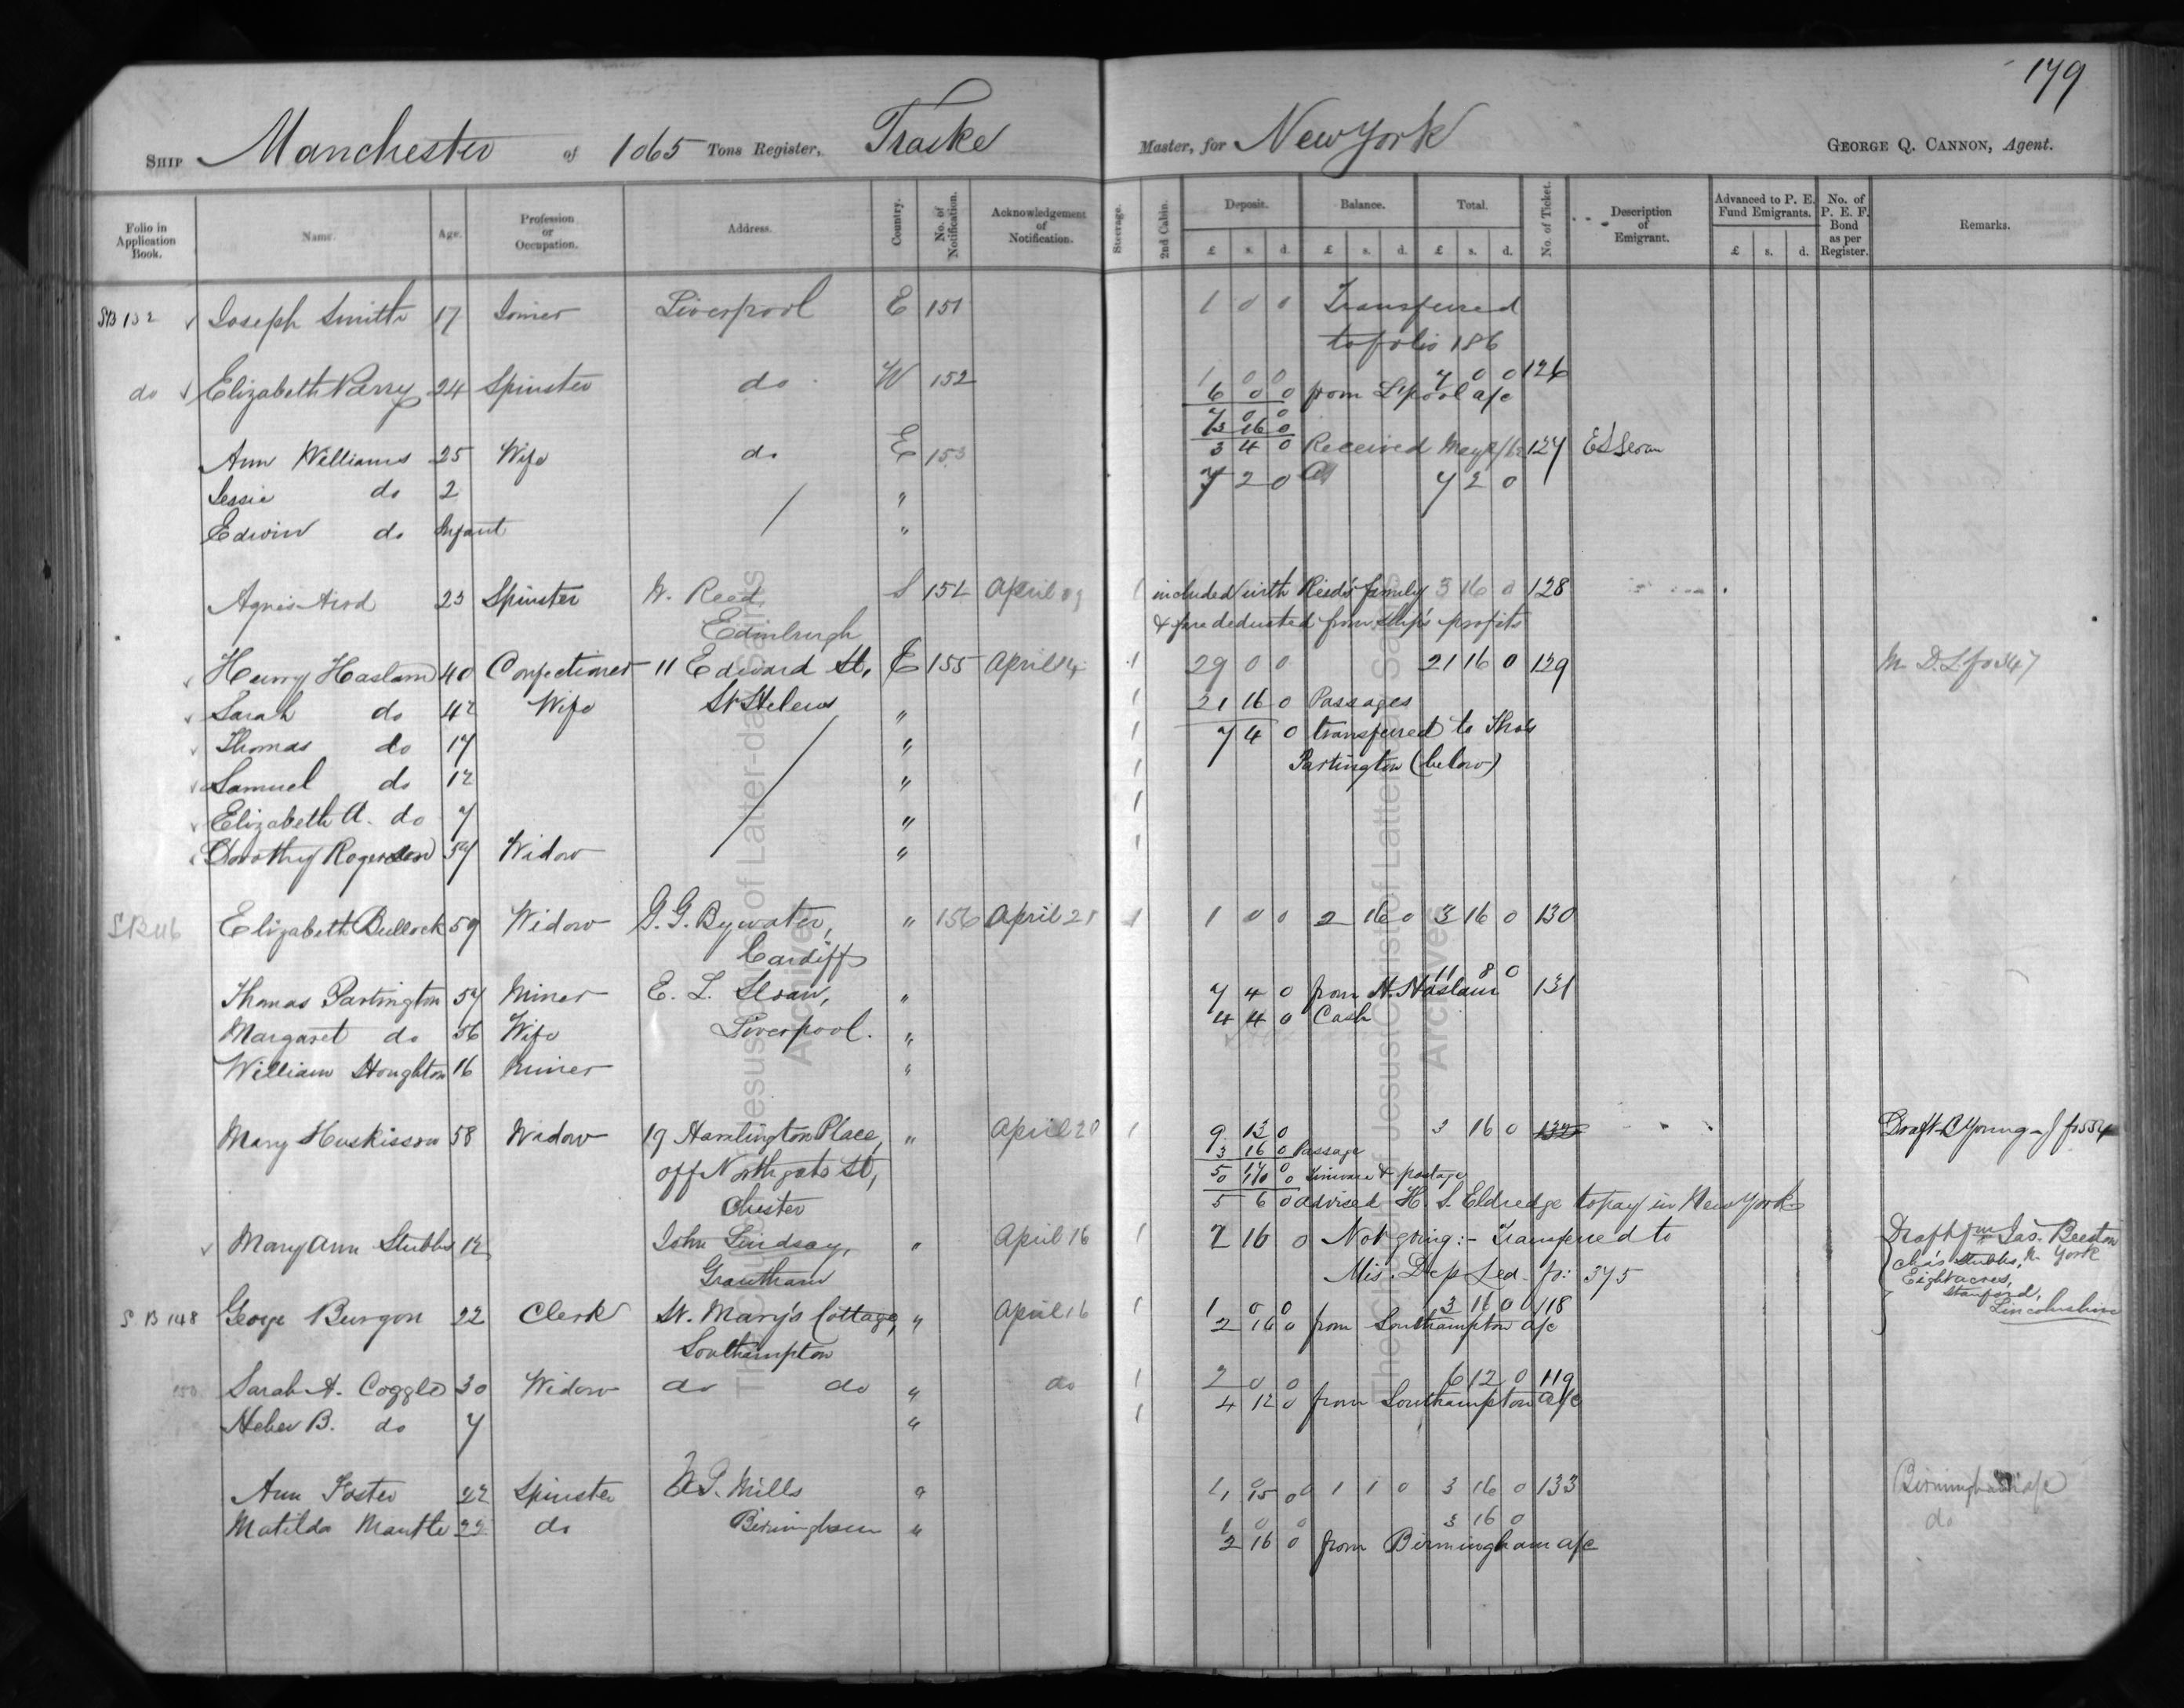 179
SHIP Manchester of 1065 Tons Register, Traske Master, for New York GEORGE Q. CANNON, Agent.
Folio in Application Book. Name. Age. Profession or Occupation. Address. Country. No. of Notification. Acknowledgement of Notification. Steerage. 2nd Cabin. Deposit. Balance. Total. No. of Ticket. Description of Emigrant. Advanced to P. E. Fund Emigrants. No. of P. E. F. Bond as per Register. Remarks.
£ s. d. £ s. d. £ s. d. £ s. d.
SB 132 Joseph Smith 17 Joiner Liverpool E 151 1 0 0 Transferred
to folio 186
do Elizabeth Parry 24 Spinster do W 152 1 0 0 7 0 0 126
6 0 0 from L'pool a/c
7 0 0
3 16 0
Ann Williams 25 Wife do E 153 3 4 0 Received May 127 E L Sloan
Jessie do 2 " 7 2 0 7 2 0
Edwin do Infant "
Agnes 23 Spinster W. Reed, S 154 April 1 included with Reid's family 3 16 0 128
Edinburgh & fare deducted from ship's profits
Henry Haslam 40 Confectioner 11 Edward St, E 155 April 14 1 29 0 0 21 16 0 129 M. D. L. fo 347
Sarah do 42 Wife St Helens " 1 21 16 0 Passages
Thomas do 17 " 1 7 4 0 transferred to Thos
Samuel do 12 " 1 Partington (below)
Elizabeth A. do 7 " 1
Dorothy Rogerson 57 Widow " 1
S B 116 Elizabeth Bullock 59 Widow G. G. Bywater, " 156 April 21 1 1 0 0 2 16 0 3 16 0 130
Cardiff
11 8 0
Thomas Partington 57 Miner E. L. Sloan, " 7 4 0 from H. Haslam 131
Margaret do 56 Wife Liverpool. " 4 4 0 Cash
William Houghton 16 Miner "
Mary Huskisson 58 Widow 19 Hamlington Place, " April 20 1 9 13 0 3 16 0 132 Draft B Young
off Northgate St, 3 16 0 Passage
5 17 0
Chester 5 6 0 advised H. S. Eldredge to pay in New York
Mary Ann Stubbs 12 John Lindsay, " April 16 1 2 16 0 Not going:- Transferred to Draft fm Jas. Beeston
Grantham Mis. Dep Led. fo: 375 Chas Stubbs, N. York
Eightacres,
Stanford,
Lincolnshire
S B 148 George Burgon 22 Clerk St. Mary's Cottage, " April 16 1 1 0 0 3 16 0 118
Southampton 2 16 0 from Southampton a/c
150 Sarah A. Coggle 30 Widow do do " do 1 2 0 0 6 12 0 119
4 12 0 from Southampton a/c
Heber B. do 7 " 1
Ann Foster 22 Spinster W. G. Mills " 1 1 0 3 16 0 133 Birmingham a/c
Matilda Mantle 22 do Birmingham " 1 0 0 3 16 0 do
2 16 0 from Birmingham a/c
The Church of Jesus Christ of Latter-day Saints
Archives
The Church of Jesus Christ of Latter-day Saints
Archives